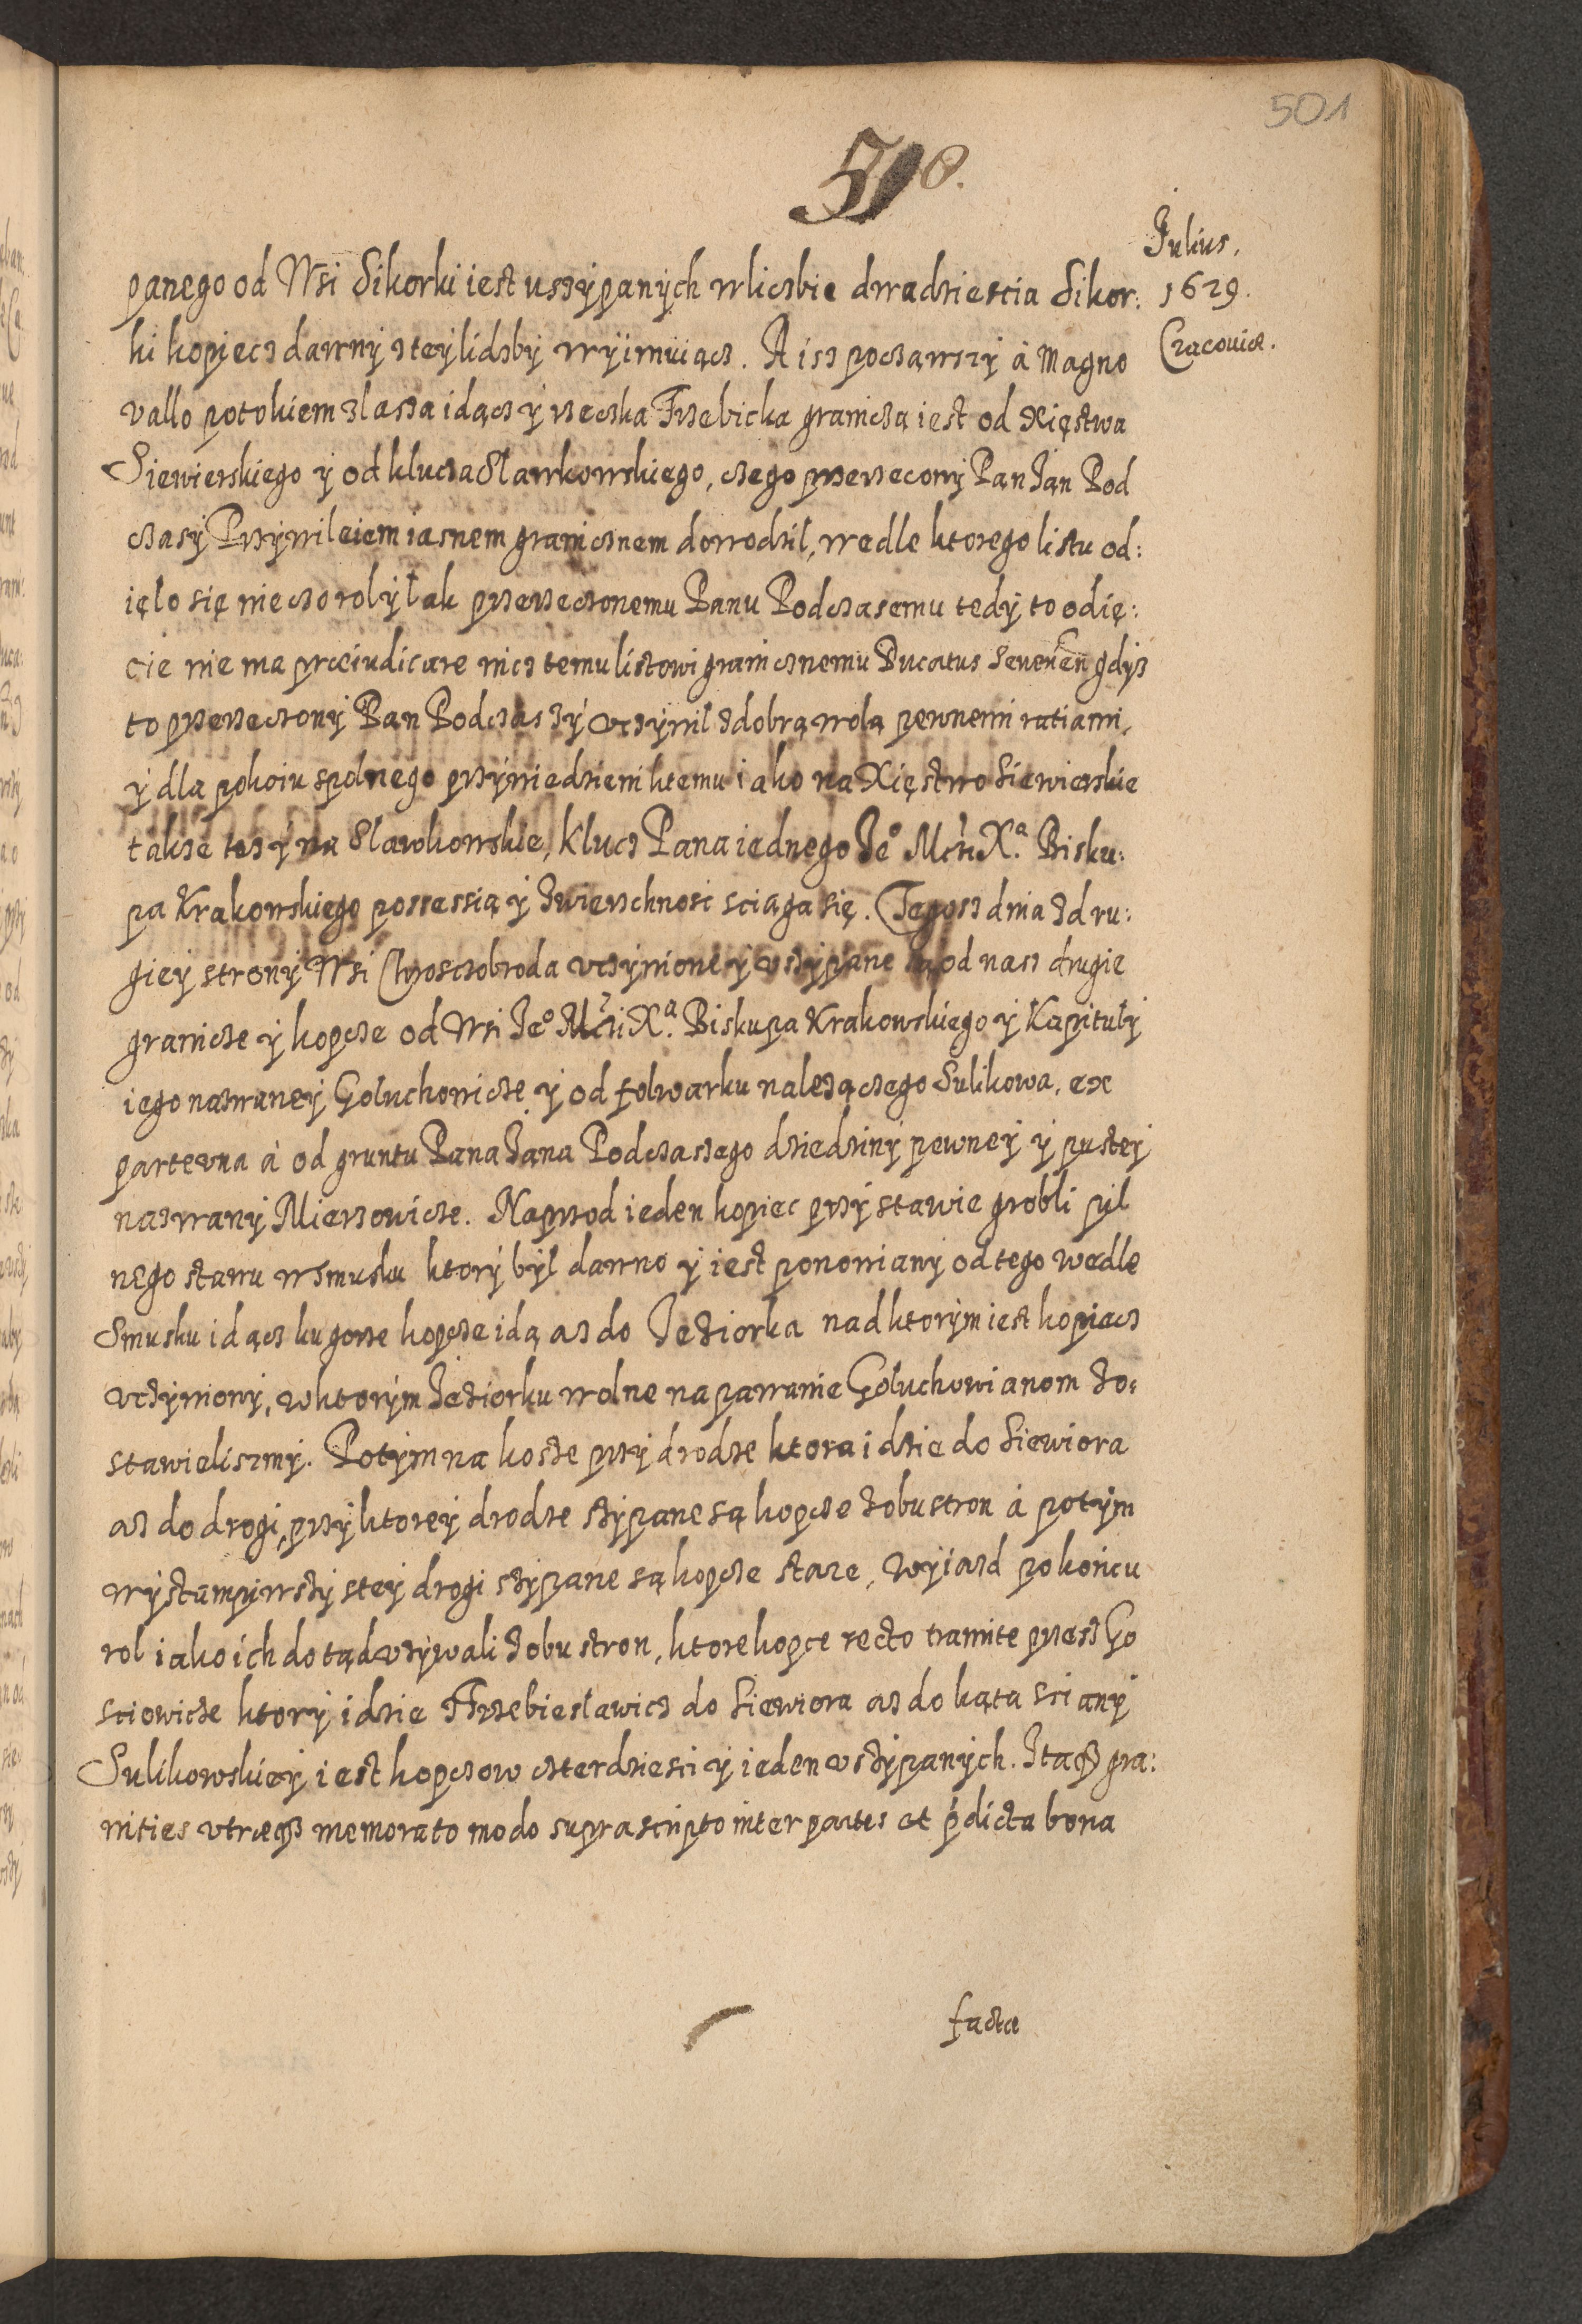 501
510.
Julius.
1629.
Cracoviæ.
panego od Wsi Sikorki iest uszÿpanÿch wliczbie dwadziescia Sikor:
ki kopiecz dawnÿ z teÿ lidzbÿ wÿimuiącz. A isz począwszÿ à Magno
vallo potokiem zlasza idącz ÿ rzeczka Trzebicka graniczą iest od Xięstwa
Siewierskiego ÿ od klucza Slawkowskiego, czego przerzeconÿ Pan Jan Pod
czasÿ Przÿwileiem iasnem granicznem dowodził, wedle ktorego listu od:
ięło się nieczo rolÿ łak przerzeczonemu Panu Podczasemu tedÿ to odię:
cie nie ma præiudicare nicz temu listowi granicznemu Ducatus Severien gdÿsz
to przerzeczonÿ Pan Podczaszÿ vczÿnil zdobrą wolą pewnemi ratiami,
ÿ dla pokoiu spolnego przÿwiedzieni ktemu iako na Xięstwo Siewierskie
takze tesz ÿ na Slawkowskie, klucz Pana iednego Je° Mći X.ª Bisku:
pa Krakowskiego possessią ÿ Zwierzchnosc sciąga się. Tegosz dnia zdru:
gieÿ stronÿ Wsi Chrosczobroda vczÿnione ÿ vszÿpane są od nasz drugie
granicze ÿ kopcze od Wsi Je° Mći X.ª Biskupa Krakowskiego ÿ Kapitułÿ
iego nazwaneÿ Gołuchowicze ÿ od folwarku nalezączego Sulikowa, ex
parte vna à od gruntu Pana Jana Podczaszego dziedzinÿ pewneÿ ÿ pusteÿ
nazwanÿ Mierzowicze. Naprzod ieden kopiec przÿ stawie grobli pil
nego stawu w Smusku ktorÿ bÿl dawno ÿ iest ponowianÿ od tego wedle
Smusku idącz ku gorze kopcze idą az do Jeziorka nad ktorÿm iest kopiecz
vczÿnionÿ, w ktorÿm Jeziorku wolne napawanie Gołuchowianom zo:
stawieliszmÿ. Potÿm na kosze przÿ drodze ktora idzie do Siewiora
az do drogi, przÿ ktoreÿ drodze szÿpane są kopcze zobu stron à potÿm
wÿstampiwszÿ z teÿ drogi szÿpane są kopcze stare, wÿiazd po końcu
rol iako ich dotąd vzÿwali zobu stron, ktore kopce recto tramite przesz Go
sciowicze ktorÿ idzie Trzebiesławicz do Siewiora az do kąta scianÿ
Sulikowskieÿ iest kopczow czterdziesci ÿ ieden vszÿpanÿch. Itaqꝫ gra:
nities vtræqꝫ memorato modo supra scripto inter partes et p̄dicta bona
factæ